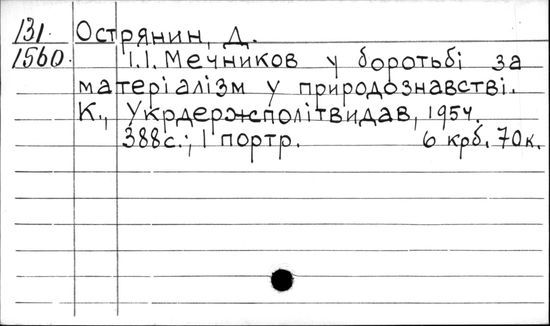 131. Острянин, Д.
1560. І.І. Мечников у боротьбі за
матеріалізм у природознавстві.
К., Укрдержполітвидав, 1954.
388с.; 1 портр. 6 крб. 70к.